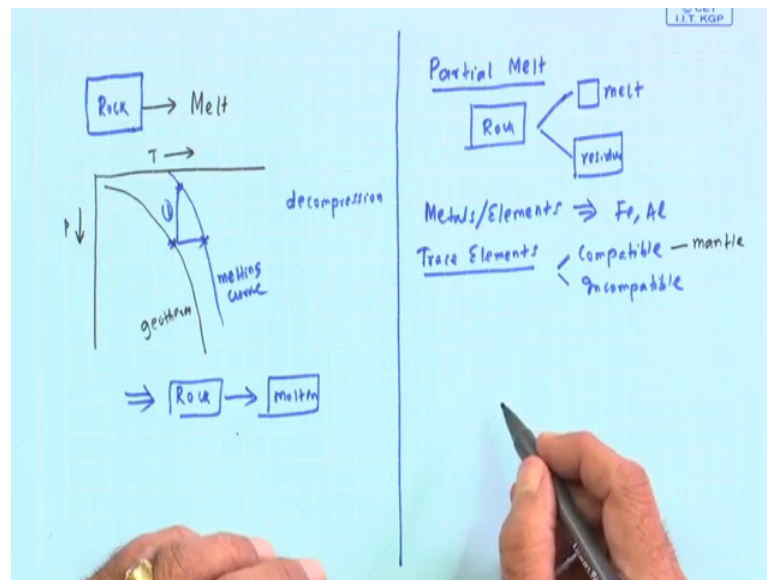 © CET
I.I.T. KGP
Rock → Melt
T →
P ↓
①
decompression
melting
curve
geotherm
⇒ Rock → Molten
Partial Melt
Rock
melt
residue
Metals/Elements ⇒ Fe, Al
Trace Elements
Compatible — mantle
Incompatible